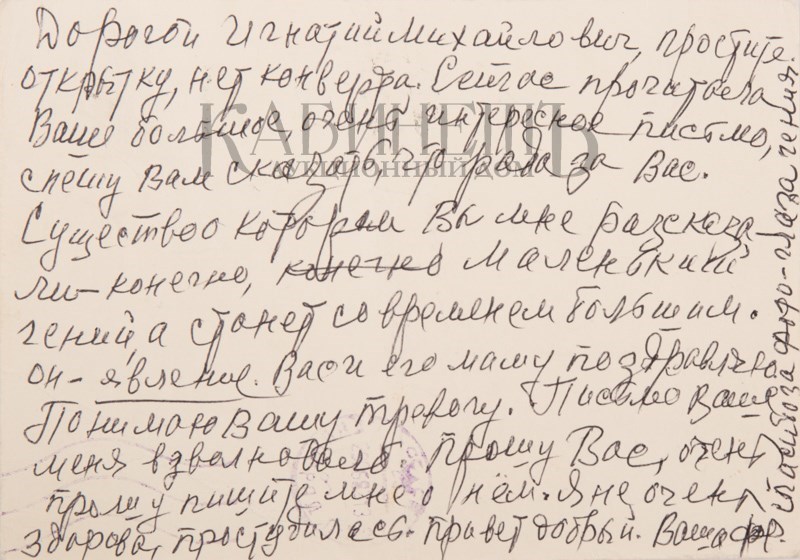 Дорогой Игнатий Михайлович, простите
открытку, нет конверта. Сейчас прочитала
Ваше большое, очень интересное письмо,
спешу Вам сказать, что рада за Вас.
Существо котором Вы мне рассказа-
ли – конечно, конечно маленький
гений, а станет со временем большим.
он – явление. Вас и его маму поздравляю
Понимаю Вашу тревогу. Письмо Ваше
меня взволновало. Прошу Вас, очень
прошу пишите мне о нём. Я не очень
здорова, простудилась. Привет добрый. Ваша
спасибо за фото – глаза гения.
КАБИНЕТЪ
АУКЦИОННЫЙ ДОМ